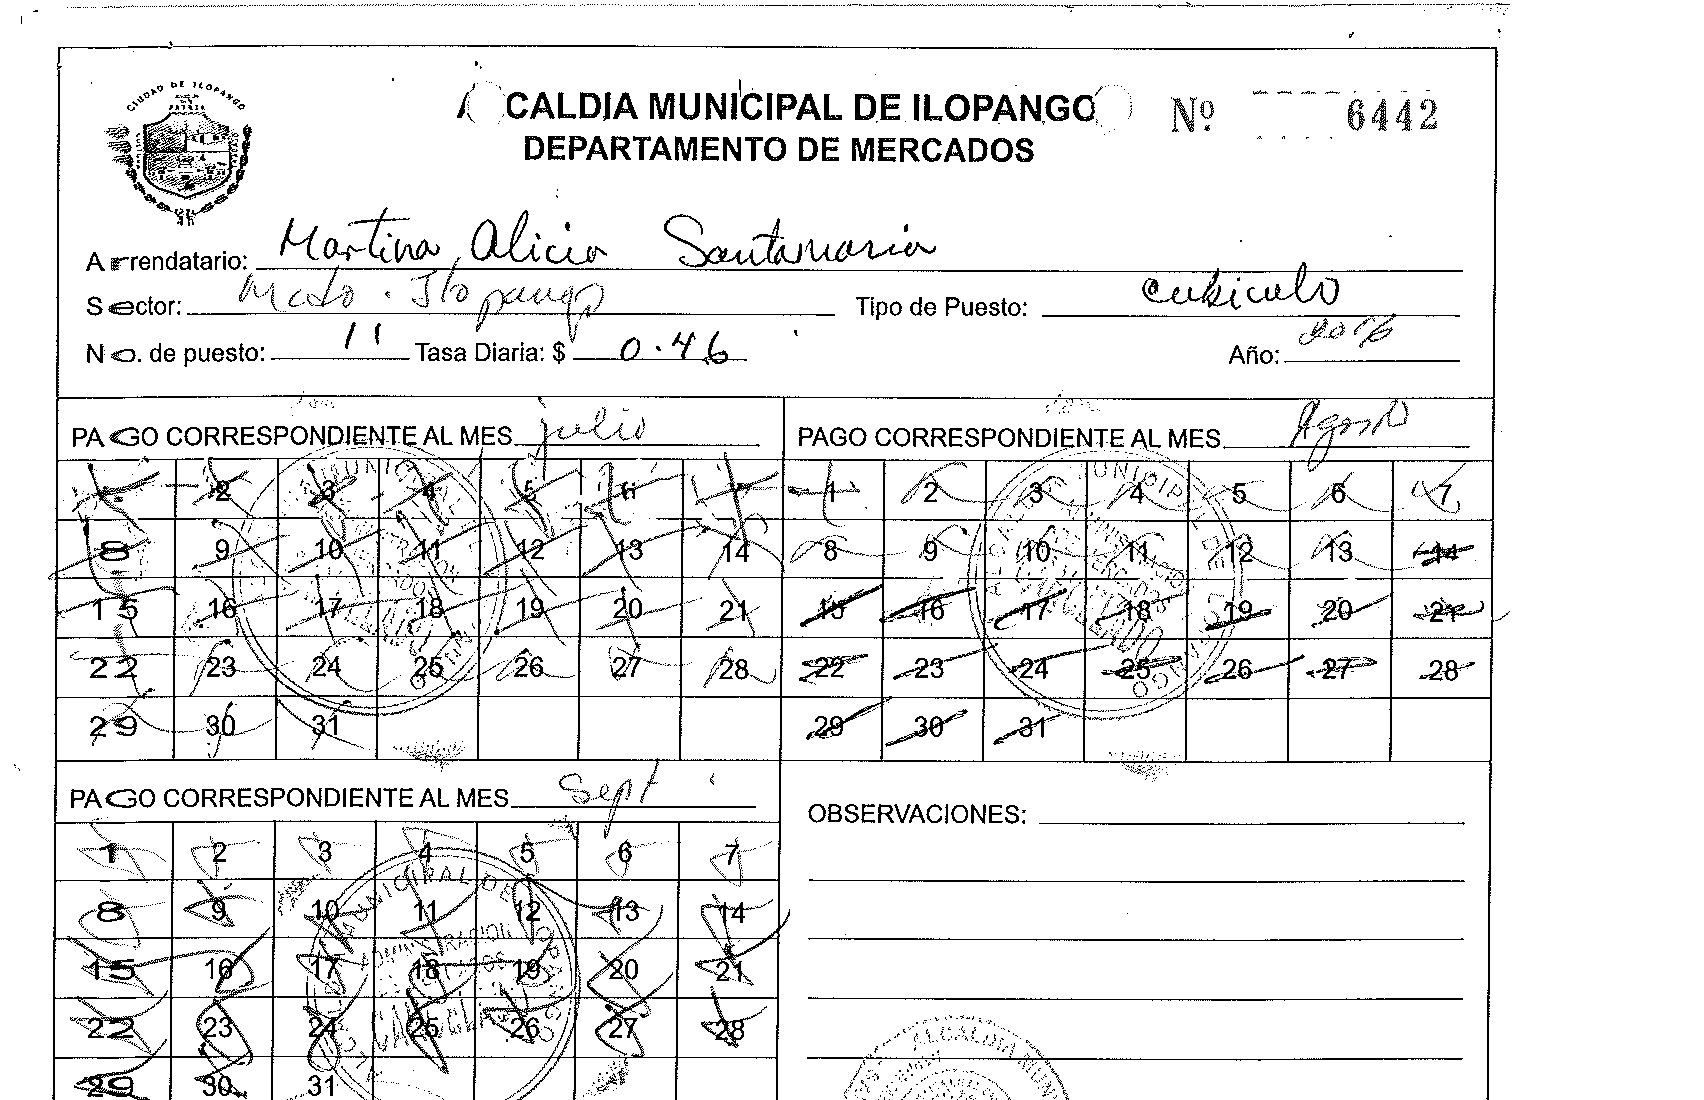 CIUDAD DE ILOPANGO
ALCALDIA MUNICIPAL DE ILOPANGO
Nº 6442
DEPARTAMENTO DE MERCADOS
Arrendatario: Martina Alicia Santamaria
Sector: Mcdo. Ilopango Tipo de Puesto: cubiculo
No. de puesto: 11 Tasa Diaria: $ 0.46 Año:
PAGO CORRESPONDIENTE AL MES julio
1 2 3 4 5 6 7
8 9 10 11 12 13 14
15 16 17 18 19 20 21
22 23 24 25 26 27 28
29 30 31
PAGO CORRESPONDIENTE AL MES Agosto
1 2 3 4 5 6 7
8 9 10 11 12 13 14
15 16 17 18 19 20 21
22 23 24 25 26 27 28
29 30 31
PAGO CORRESPONDIENTE AL MES Sept
1 2 3 4 5 6 7
8 9 10 11 12 13 14
15 16 17 18 19 20 21
22 23 24 25 26 27 28
29 30 31
OBSERVACIONES:
ALCALDIA MUN